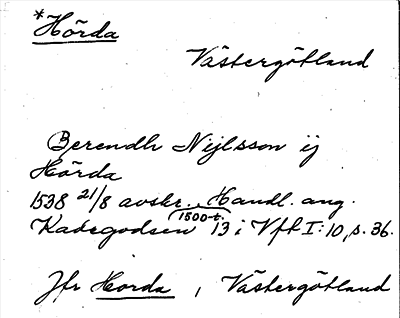 *Hörda
Västergötland
Berendh Nijlsson ij
Hörda
1538 21/8 avskr., Handl. ang.
1500-t.
Kadsgodsen 13 i Vfl I:10, s. 36.
Jfr Horda, Västergötland